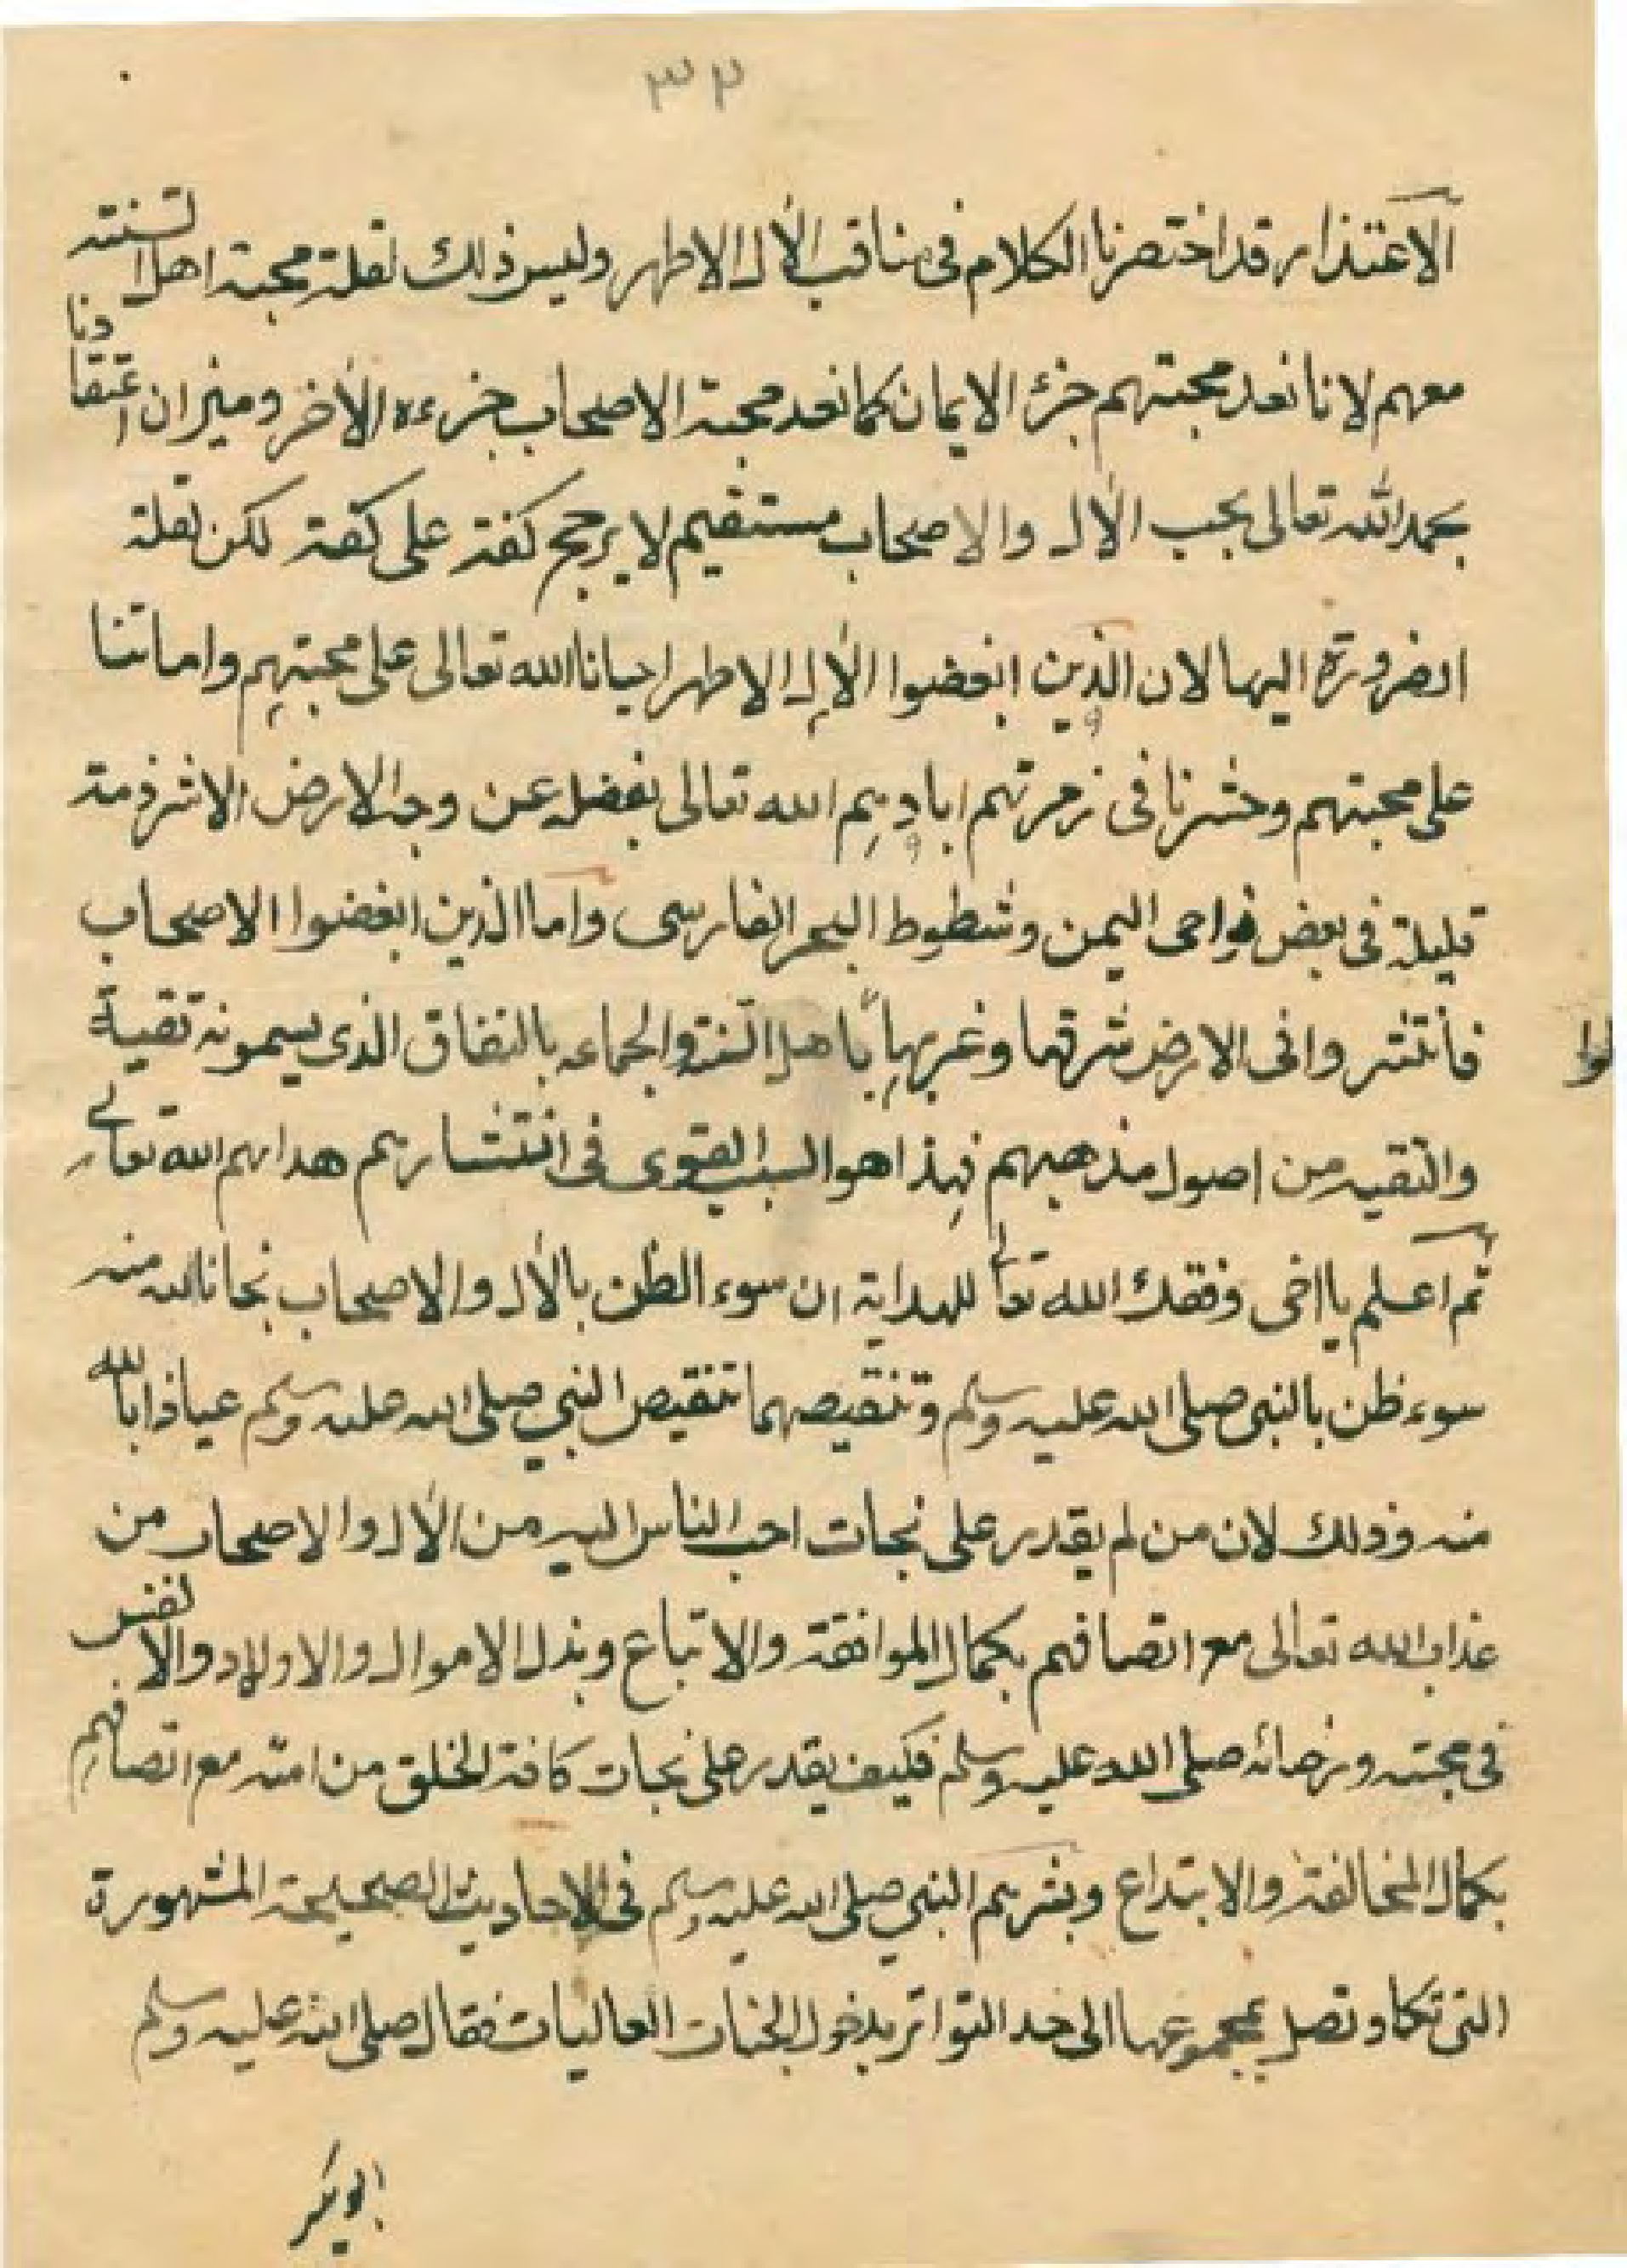 ٣٢
الاعتذار قد اختصرنا الكلام فى مناقب الأل الاطهر وليس ذلك لقلة محبة اهل السنته
معهم لانا نعد محبتهم جزئ الايمان كما نعد محبة الاصحاب جزءه الأخر وميزان اعتقادنا
بحمد الله تعالى بحب الأل والاصحاب مستقيم لا يرجح كفة على كفة لكن لقلة
الضرورة اليها لان الذين ابغضوا الأل الاطهر احيانا الله تعالى على محبتهم واماتنا
على محبتهم وحشرنا فى زمرتهم ابادهم الله تعالى بفضله عن وجه الارض الا شرذمة
قليلة فى بعض نواحى اليمن وشطوط البحر الفارسى واما الذين ابغضوا الاصحاب
فأنتشروا فى الارض شرقها وغربها باهل السنة والجماعه بالنفاق الذى يسمونه تقية
لوا
والتقيه من اصول مذهبهم فهذا هو السبب القوى فى انتشارهم هداهم الله تعالى
ثم اعلم يا اخى وفقك الله تعالى للهداية ان سوء الظن بالأل والاصحاب نجانا الله منه
سوء ظن بالنبى صلى الله عليه وسلم وتنقيصهما تنقيص النبي صلى الله عليه وسلم عياذا بالله
منه وذلك لان من لم يقدر على نجات احب الناس اليه من الأل والاصحاب من
عذاب الله تعالى مع اتصافهم بكمال الموافقة والاتباع وبذل الاموال والاولاد والانفس
فى محبته ورضائه صلى الله عليه وسلم فكيف يقدر على نجات كافة الخلق من امته مع اتصافهم
بكمال المخالفة والابتداع وبشرهم النبي صلى الله عليه وسلم فى الاحاديث الصحيحة المشهورة
التى تكاد تصل بمجموعها الى حد التواتر بدخول الجنات العاليات فقال صلى الله عليه وسلم
ابو بكر